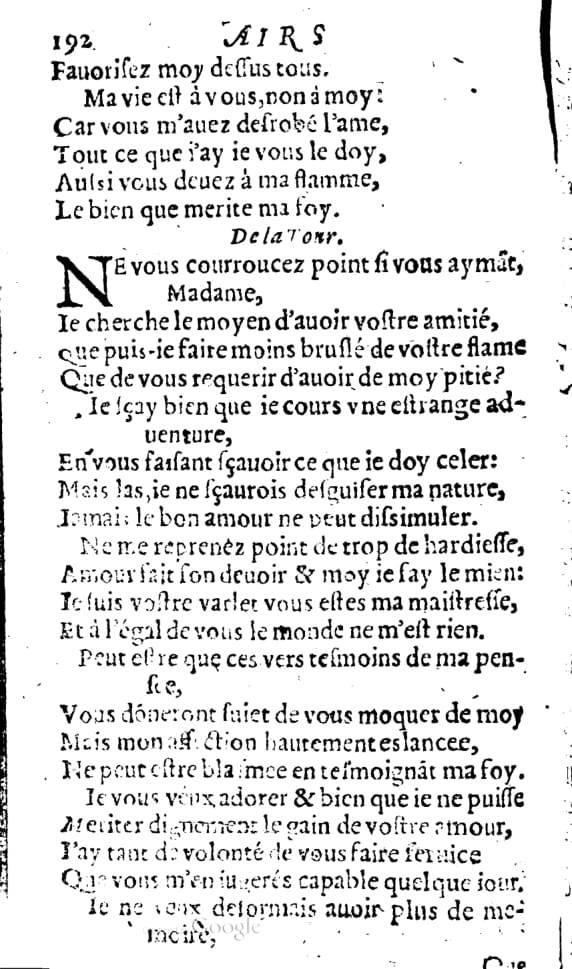 192. AIRS
Fauoriſez moy deſſus tous.
Ma vie eſt à vous, non à moy:
Car vous m'auez deſrobé l'ame,
Tout ce que i'ay ie vous le doy,
Auſsi vous deuez à ma flamme,
Le bien que merite ma foy.
De la Tour.
NE vous courroucez point ſi vous aymãt,
Madame,
Ie cherche le moyen d'auoir voſtre amitié,
Que puis-ie faire moins bruſlé de voſtre flame
Que de vous requerir d'auoir de moy pitié?
Ie ſçay bien que ie cours vne eſtrange ad-
uenture,
En vous faiſant ſçauoir ce que ie doy celer:
Mais las, ie ne ſçaurois deſguiſer ma nature,
Iamais le bon amour ne peut diſsimuler.
Ne me reprenez point de trop de hardieſſe,
Amour fait ſon deuoir & moy ie fay le mien:
Ie ſuis voſtre varlet vous eſtes ma maiſtreſſe,
Et à l'égal de vous le monde ne m'eſt rien.
Peut eſtre que ces vers teſmoins de ma pen-
ſée,
Vous dõneront ſuiet de vous moquer de moy
Mais mon affection hautement eslancee,
Ne peut eſtre blaſmee en teſmoignãt ma foy.
Ie vous veux adorer & bien que ie ne puiſſe
Meriter dignement le gain de voſtre amour,
I'ay tant de volonté de vous faire ſeruice
Que vous m'en iugerés capable quelque iour.
Ie ne veux deſormais auoir plus de me-
moire,
Google
Que